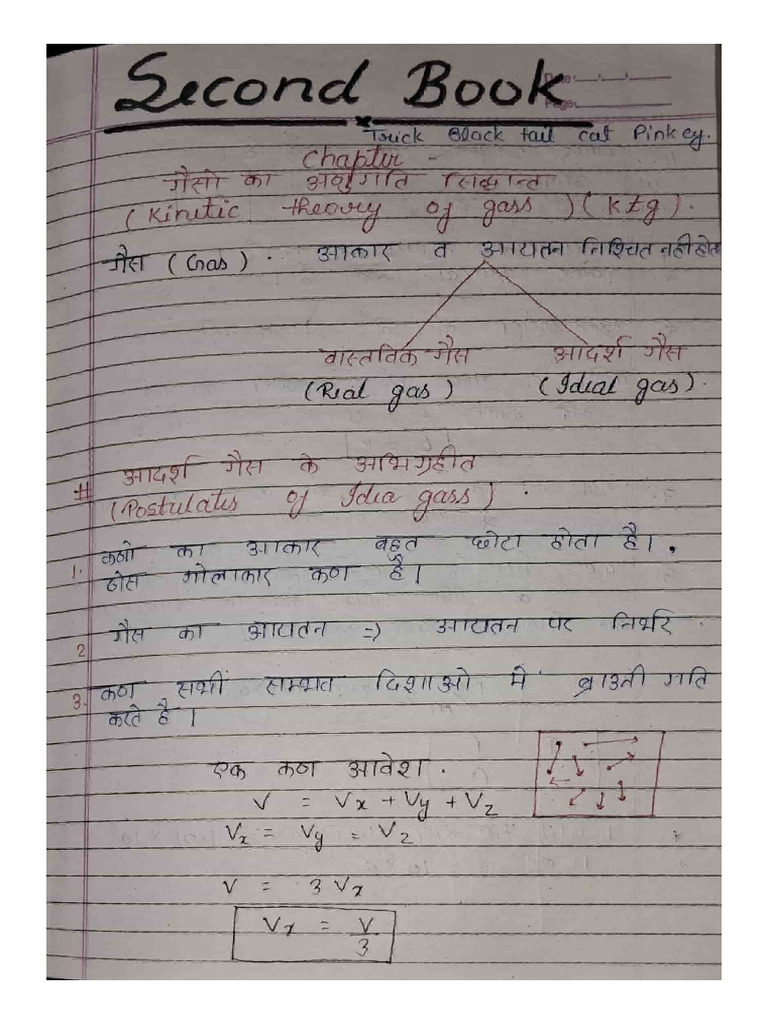 Second Book
Date: Page:
Trick Black tail cat Pinkey.
Chapter -
गैसो का अणुगति सिद्धान्त
(Kinetic theory of gass) (ktg).
गैस (Gas). आकार व आयतन निश्चित नही होता
वास्तविक गैस आदर्श गैस
(Real gas) (Idial gas).
# आदर्श गैस के अभिग्रहीत
(Postulates of Idia gass).
1. कणो का आकार बहुत छोटा होता है।.
ठोस गोलाकार कण है।
2 गैस का आयतन => आयतन पर निर्भर.
3. कण सभी सम्भव दिशाओ मे ब्राउनी गति
करते है।
एक कण आवेश.
V = Vx + Vy + Vz
Vx = Vy = Vz
V = 3 Vx
Vx = V/3